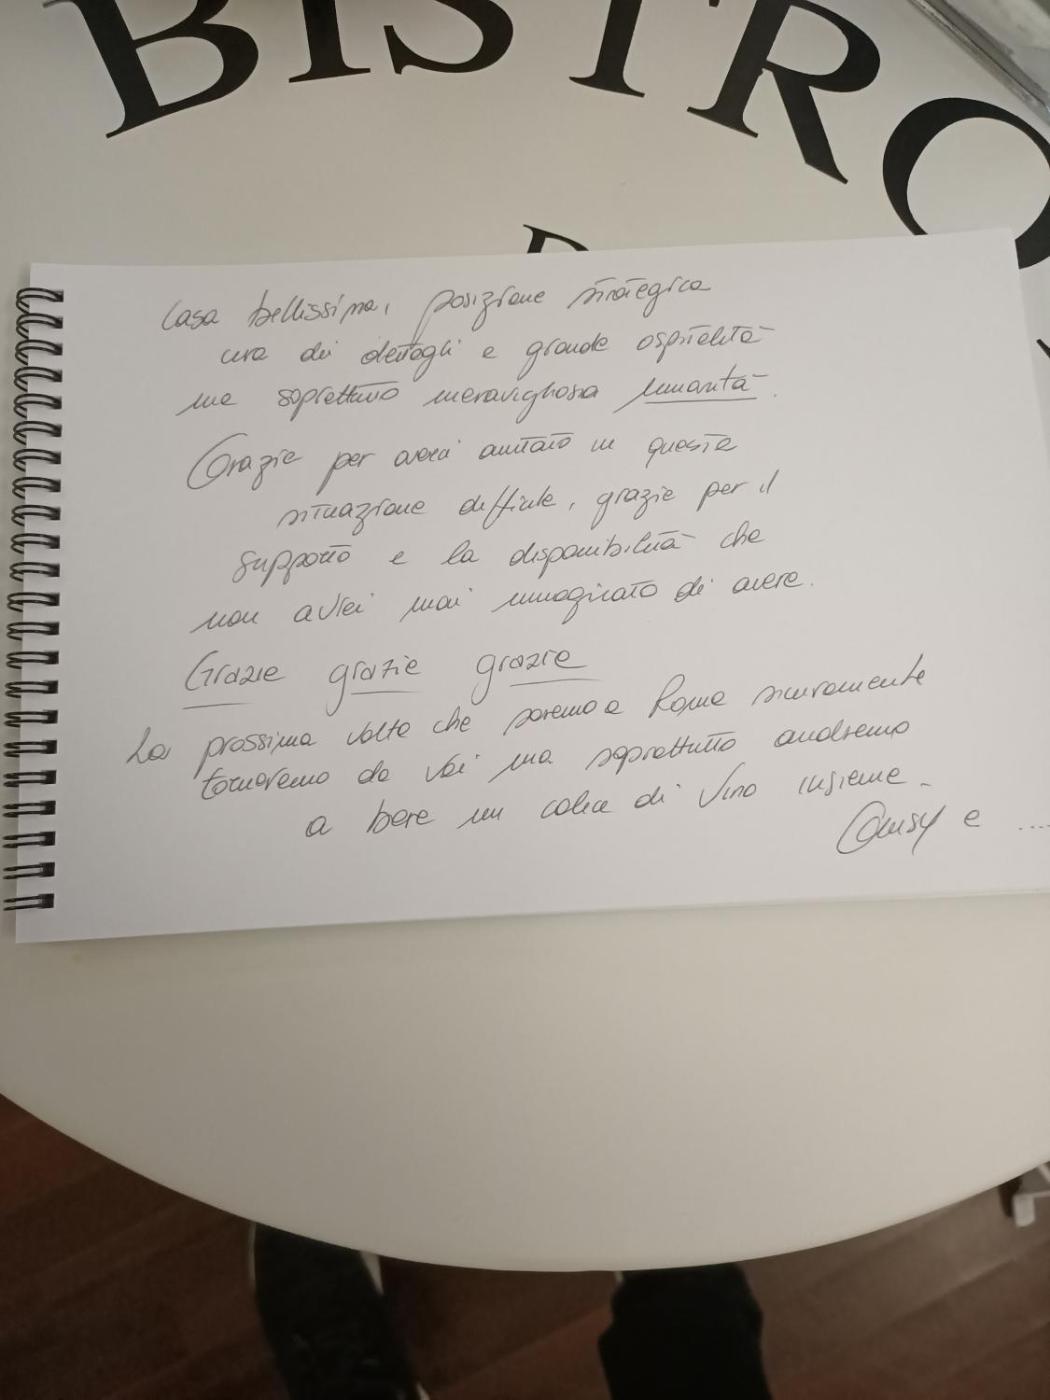 BISTRO
Casa bellissima, posizione strategica
cura dei dettagli e grande ospitalità
ma soprattutto meravigliosa umanità.
Grazie per averci aiutato in questa
situazione difficile, grazie per il
supporto e la disponibilità che
non avrei mai immaginato di avere.
Grazie grazie grazie
La prossima volta che saremo a Roma sicuramente
torneremo da voi ma soprattutto andremo
a bere un calice di vino insieme.
e ....